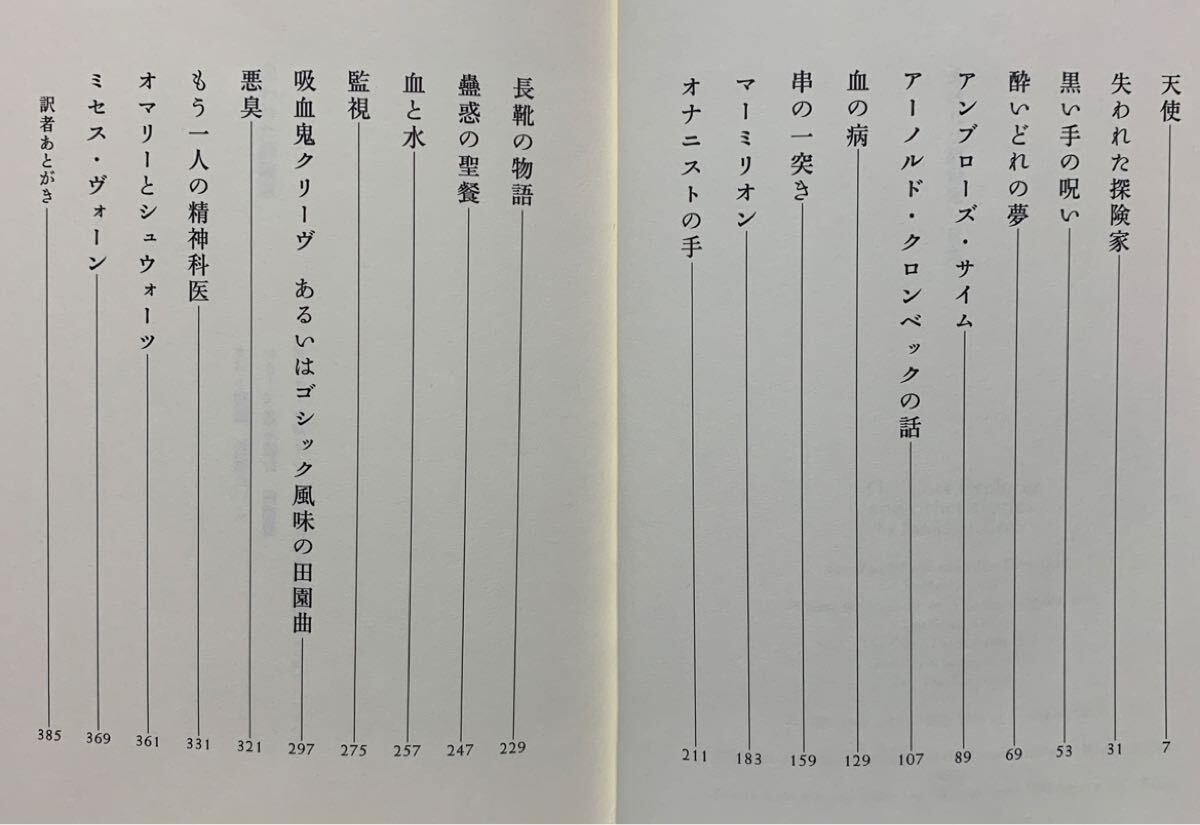 天使 7
失われた探険家 31
黒い手の呪い 53
酔いどれの夢 69
アンブローズ・サイム 89
アーノルド・クロンベックの話 107
血の病 129
串の一突き 159
マーミリオン 183
オナニストの手 211
長靴の物語 229
蠱惑の聖餐 247
血と水 257
監視 275
吸血鬼クリーヴ あるいはゴシック風味の田園曲 297
悪臭 321
もう一人の精神科医 331
オマリーとシュウォーツ 361
ミセス・ヴォーン 369
訳者あとがき 385